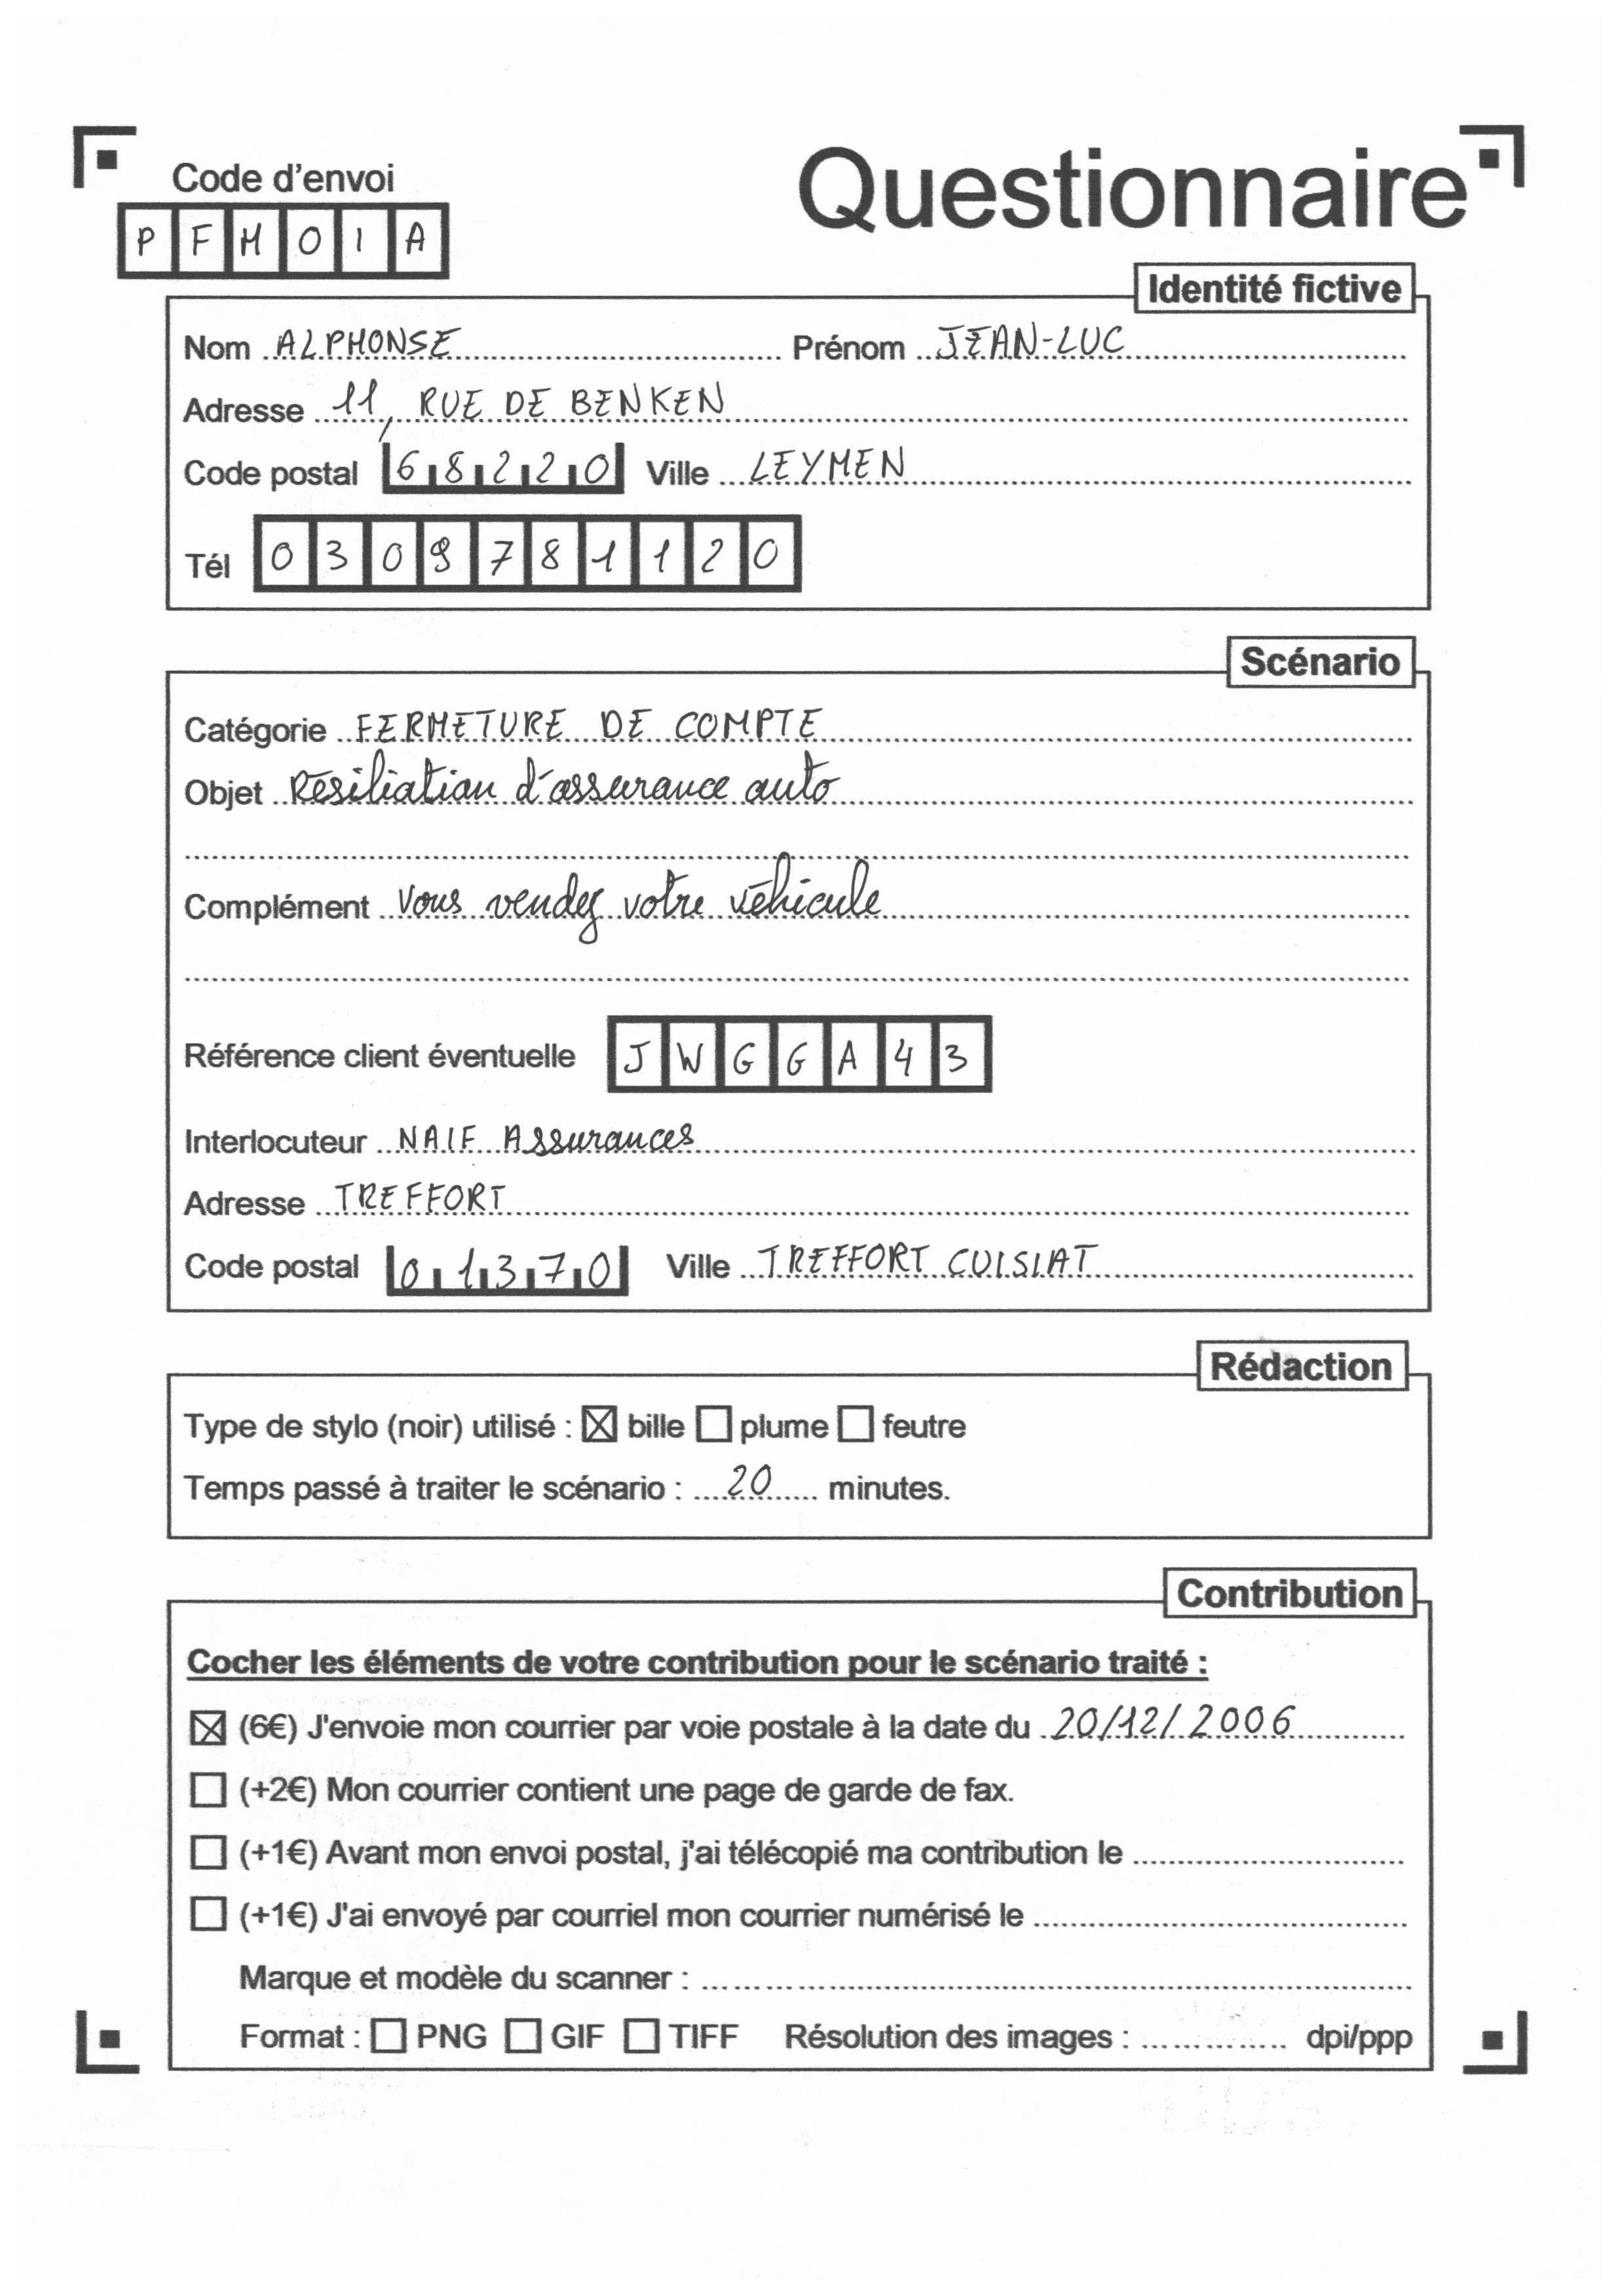 Code d'envoi
Questionnaire
P F M 0 1 A
Identité fictive
Nom ALPHONSE Prénom JEAN-LUC
Adresse 11, RUE DE BENKEN
Code postal 68220 Ville LEYMEN
Tél 0309781120
Scénario
Catégorie FERMETURE DE COMPTE
Objet Résiliation d'assurance auto
Complément Vous vendez votre véhicule
Référence client éventuelle JWGGA43
Interlocuteur NAIF Assurances
Adresse TREFFORT
Code postal 01370 Ville TREFFORT CUISIAT
Rédaction
Type de stylo (noir) utilisé : ☒ bille ☐ plume ☐ feutre
Temps passé à traiter le scénario : 20 minutes.
Contribution
Cocher les éléments de votre contribution pour le scénario traité :
☒ (6€) J'envoie mon courrier par voie postale à la date du 20/12/2006
☐ (+2€) Mon courrier contient une page de garde de fax.
☐ (+1€) Avant mon envoi postal, j'ai télécopié ma contribution le
☐ (+1€) J'ai envoyé par courriel mon courrier numérisé le
Marque et modèle du scanner :
Format : ☐ PNG ☐ GIF ☐ TIFF Résolution des images : dpi/ppp